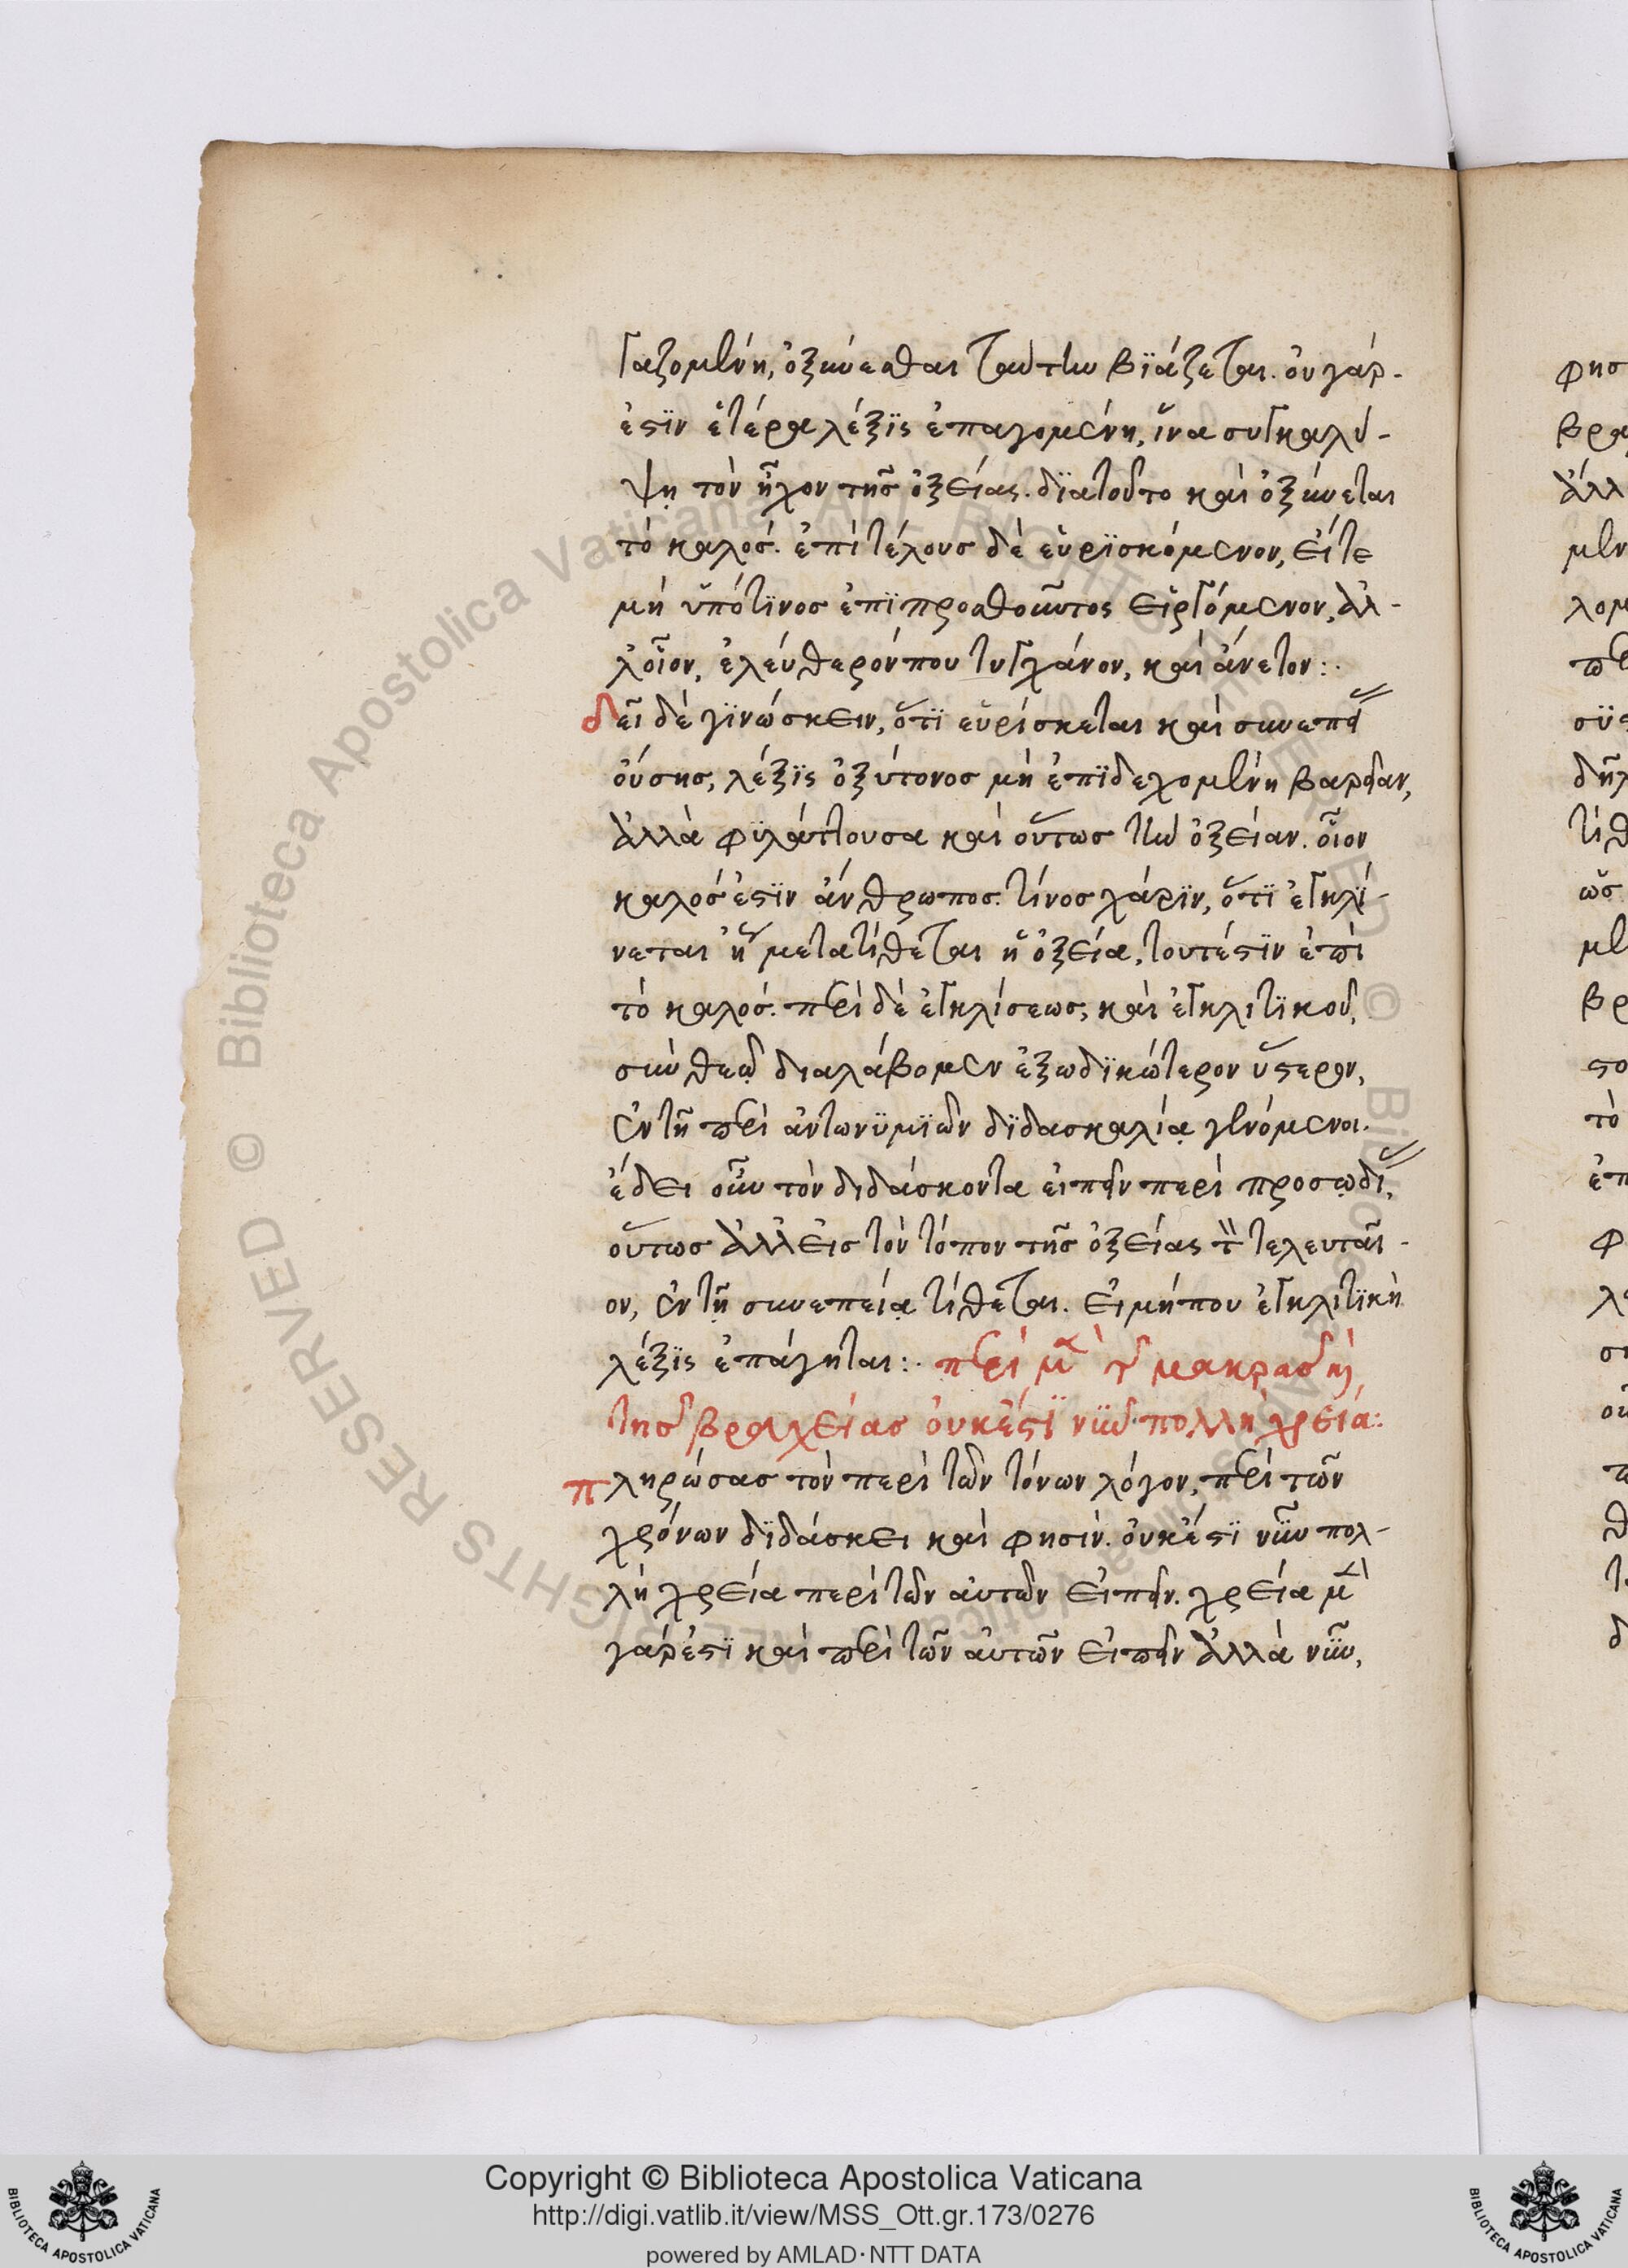 ταζομένη, ὀξύνεσθαι ταύτην βϊάζεται. οὐ γάρ-
ἐστϊν ἑτέρα λέξϊς ἐπαγομένη, ἵνα συγκαλύ-
ψῃ τὸν ἦχον τῆς ὀξείας. δϊατοῦτο καὶ ὀξύνεται
τὸ καλός. ἐπὶ τέλους δὲ εὑρϊσκόμενον, εἴτε
μὴ ὑπό τϊνος ἐπϊπροσθοῦντος εἰργόμενον, ἀλ-
λοῖον, ἐλεύθερόν που τυγχάνον, καὶ ἄνετον:.
δεῖ δὲ γϊνώσκειν, ὅτϊ εὑρίσκεται καὶ συνεπεί
οὔσης, λέξϊς ὀξύτονος μὴ ἐπϊδεχομένη βαρεῖαν,
ἀλλὰ φϋλάττουσα καὶ οὕτως τὴν ὀξεῖαν. οἷον
καλός ἐστϊν ἄνθρωπος. τίνος χάρϊν, ὅτϊ ἐγκλί-
νεται ἢ μετατίθεται ἡ ὀξεία, τουτέστϊν ἐπὶ
τὸ καλός. περὶ δὲ ἐγκλίσεως, καὶ ἐγκλιτϊκοῦ,
σὺν θεῷ διαλάβομεν ἐξωδϊκώτερον ὕστερον,
ἐν τῇ περὶ ἀντωνϋμϊῶν δϊδασκαλίᾳ γενόμενοι.
ἔδει οὖν τὸν διδάσκοντα εἰπεῖν περὶ προσῳδϊ,
οὕτως ἀλλ εἰς τὸν τόπον τῆς ὀξείας τ̀ τελευταῖ-
ον, ἐν τῇ συνεπείᾳ τίθεται. εἰ μή που ἐγκλιτϊκὴ
λέξϊς ἐπάγηται:. περὶ μ τ μακρᾶς κὶ
τῆς βραχείας οὐκέστϊ νῦν πολλὴ χρεία:
πληρώσας τὸν περὶ τῶν τόνων λόγον, περὶ τῶν
χρόνων δϊδάσκει καὶ φησίν. οὐκέστϊ νῦν πολ-
λὴ χρεία περὶ τῶν αὐτῶν εἰπεῖν. χρεία μ
γάρ ἐστϊ καὶ περὶ τῶν αὐτῶν εἰπεῖν ἀλλὰ νῦν,
Copyright © Biblioteca Apostolica Vaticana
http://digi.vatlib.it/view/MSS_Ott.gr.173/0276
powered by AMLAD·NTT DATA